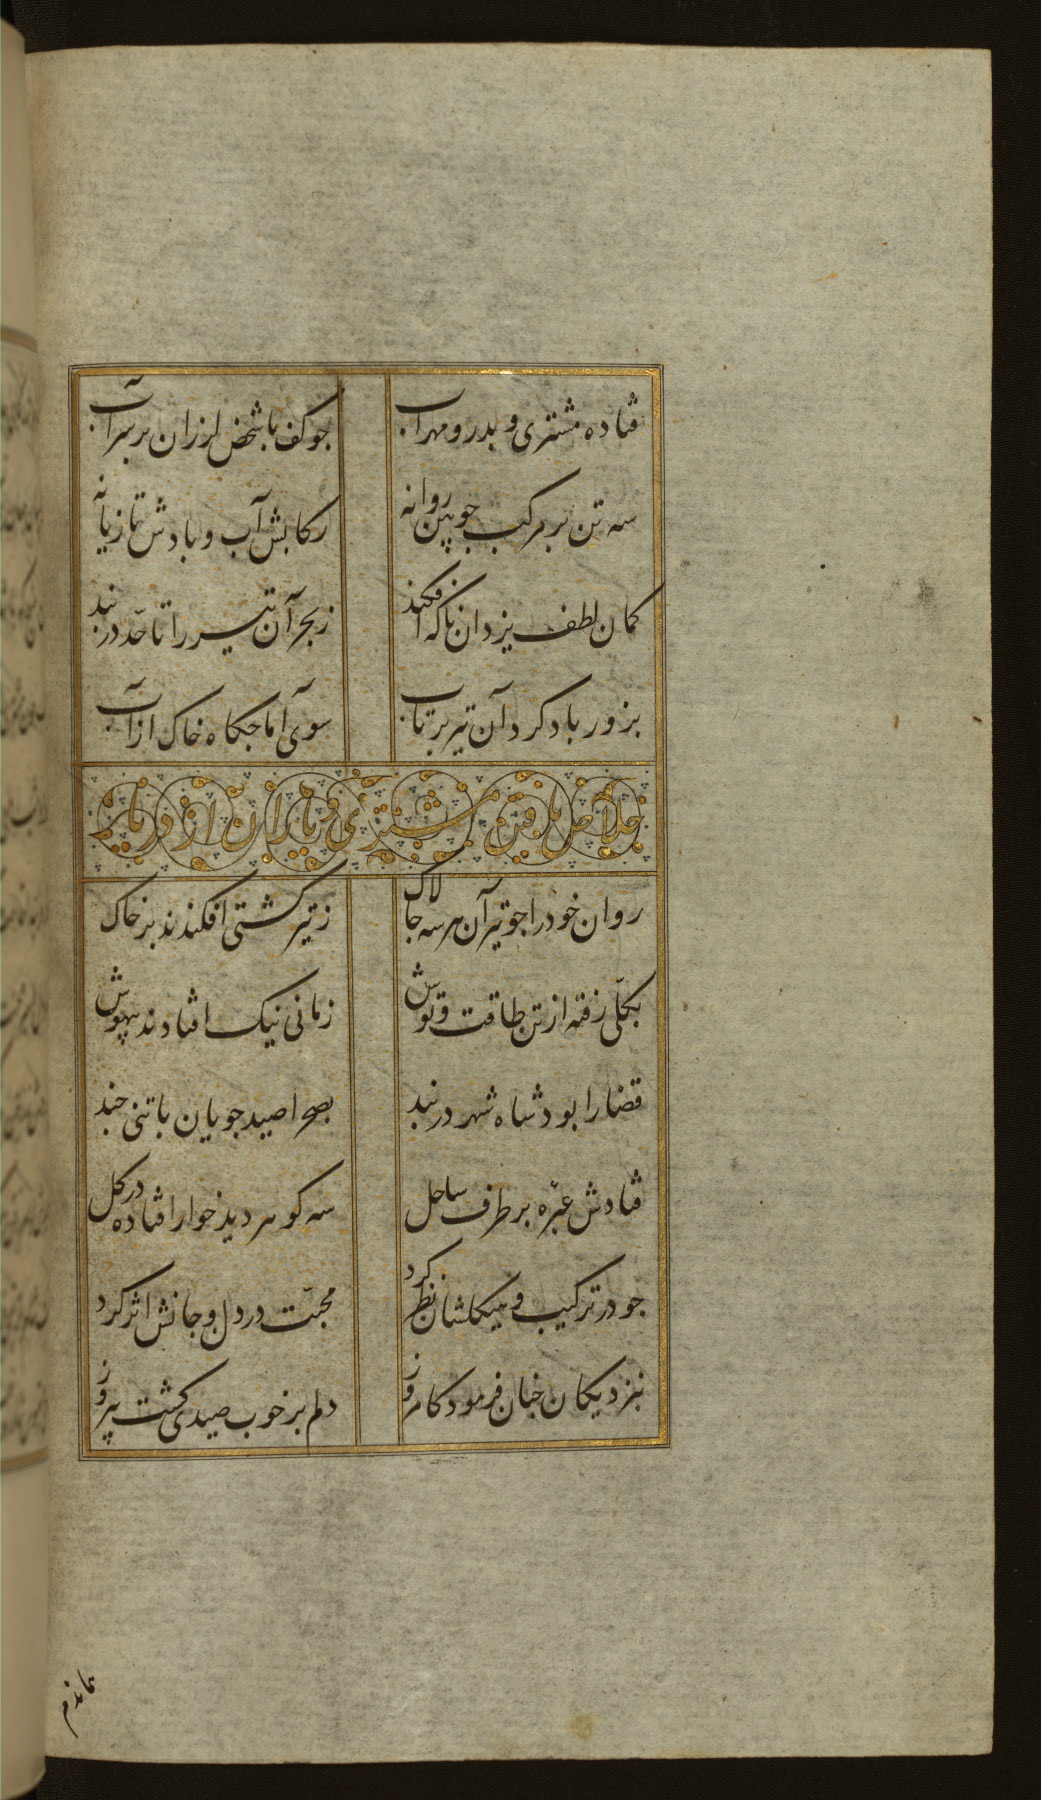 فتاده مشتری و بدر و مهراب جو کف با شخص لرزان بر سر آب
سه تن بر مرکب جوبین روانه رکابش آب و بادش تازیانه
کمان لطف یزدان ناکه افکند ز بحر آن تیر را تا حد دربند
بزور باد کرد آن تیر پرتاب سوی آماجکاه خاک از آب
خلاص یافتن مشتری و یاران از دریا
روان خود را جو تیر آن هر سه جالاک ز تیر کشتی افکندند بر خاک
بکلی رفته از تن طاقت و توش زمانی نیک افتادند بیهوش
قضا را بود شاه شهر دربند بصحرا صید جویان با تنی جند
فتادش عبره بر طرف ساحل سه کوهر دید خوار افتاده در کل
جو در ترکیب و هیکلشان نظر کرد محبت در دل و جانش اثر کرد
بنزدیکان جنان فرمود کامروز دلم بر خوب صیدی کشت پیروز